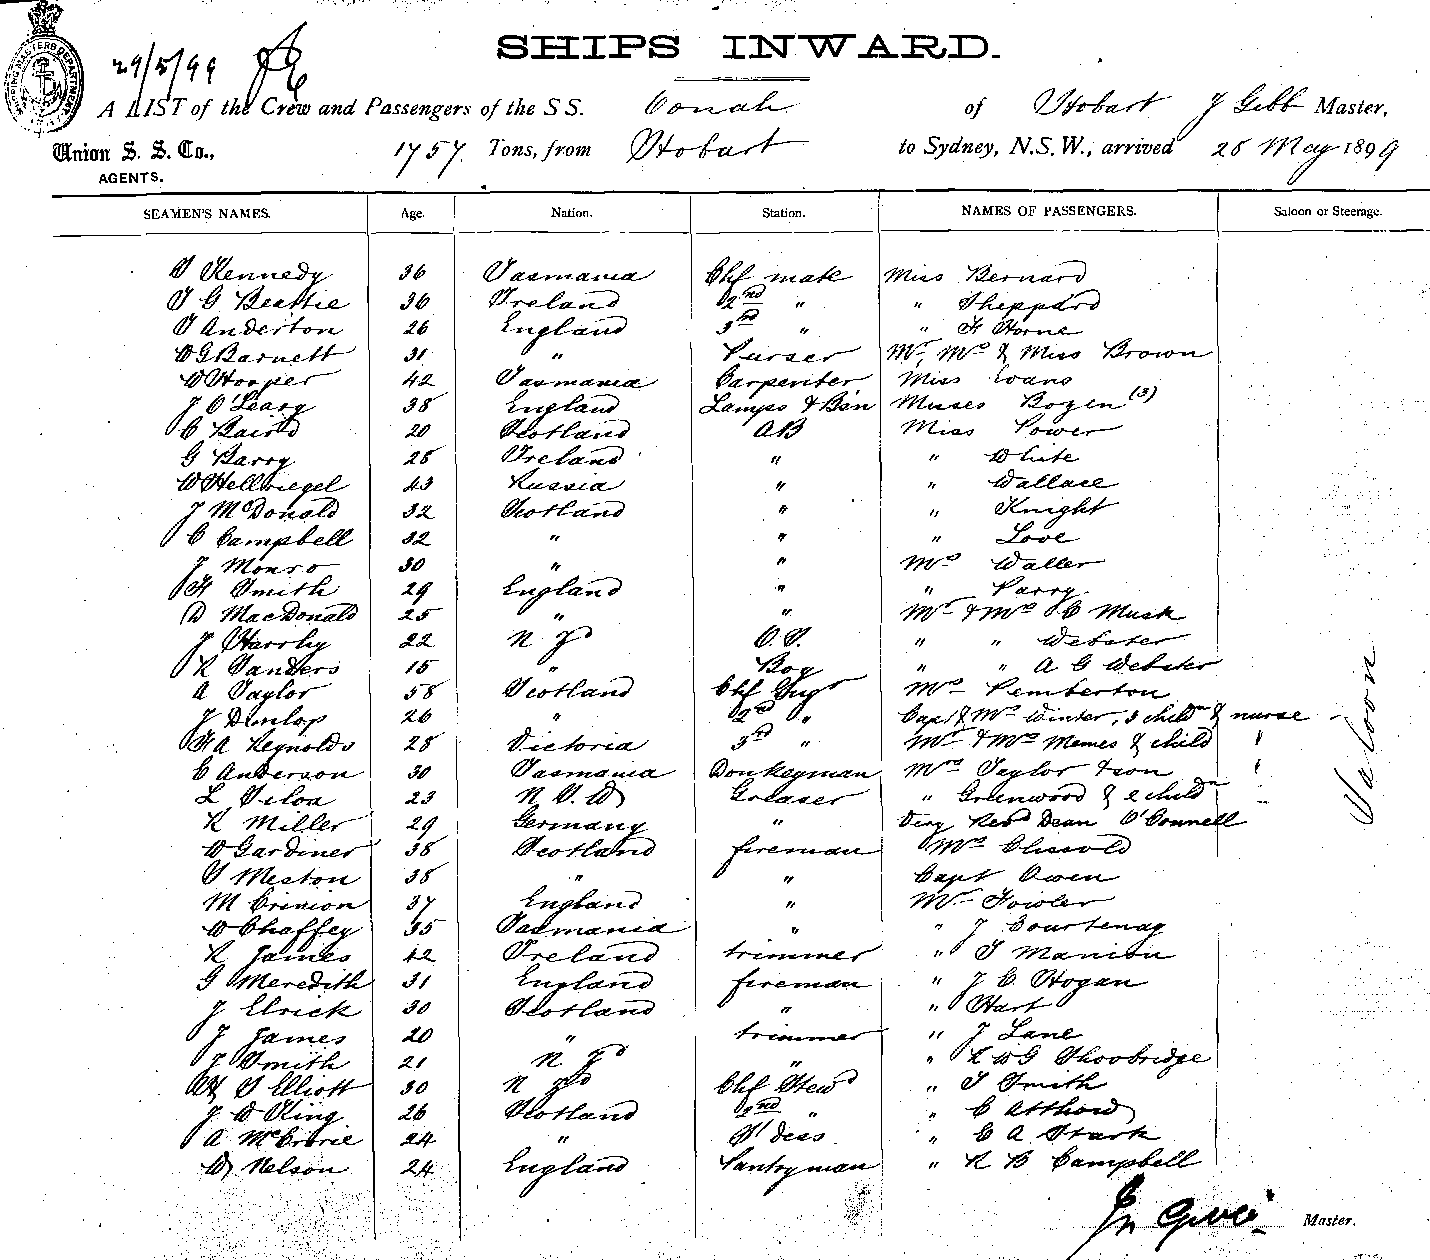 29/5/99
SHIPS INWARD.
A LIST of the Crew and Passengers of the S S. Oonah of Hobart J Gibb Master,
Union S. S. Co., 1757 Tons, from Hobart to Sydney, N.S.W., arrived 28 May 1899
AGENTS.
SEAMEN'S NAMES. Age. Nation. Station. NAMES OF PASSENGERS. Saloon or Steerage.
T Kennedy 36 Tasmania Chf mate Miss Bernard
T G Beattie 36 Ireland 2nd " " Sheppard
T Anderton 26 England 3rd " " F Horne
W G Barnett 31 " Purser Mr, Mrs & Miss Brown
W Hooper 42 Tasmania Carpenter Miss Evans
J O'Leary 38 England Lamps & Bsn Misses Bozen (3)
C Baird 20 Scotland AB Miss Power
G Barry 28 Ireland " " White
W Hellriegel 43 Russia " " Wallace
J McDonald 32 Scotland " " Knight
C Campbell 32 " " " Love
J Monro 30 " " Mrs Waller
H Smith 29 England " " Parry
D MacDonald 25 " " Mr & Mrs C Musk
J Harrhy 22 N Zd O.S. " " Webster
R Sanders 18 " Boy " " A G Webster
A Taylor 58 Scotland Chf Engr Mrs Pemberton
J Dunlop 26 " 2nd " Capt & Mrs Winter, 3 childn & nurse
H A Reynolds 28 Victoria 3rd " Mr & Mrs Memes & child "
C Anderson 30 Tasmania Donkeyman Mrs Taylor & son "
L Silva 23 N S W Greaser " Greenwood & 2 childn
R Miller 29 Germany " Very Revd Dean O'Connell
W Gardiner 38 Scotland fireman Mrs Cliswold
T Meston 38 " " Capt Owen
M Crinion 37 England " Mr Fowler
W Chaffey 35 Tasmania " " J Courtenay
R James 42 Ireland trimmer " T Manion
G Meredith 31 England fireman " J C Hogan
J Elrick 30 Scotland " " Hart
J James 20 " trimmer " J Lane
J Smith 21 N Zd " " R W G Shoobridge
T Elliott 30 N Zd Chf Stewd " T Smith
J W King 26 Scotland 2nd " " C Atthow
A McCrorie 24 " St'dess " C A Stark
W Nelson 24 England Pantryman " R B Campbell
Saloon
Jn Gibb Master.